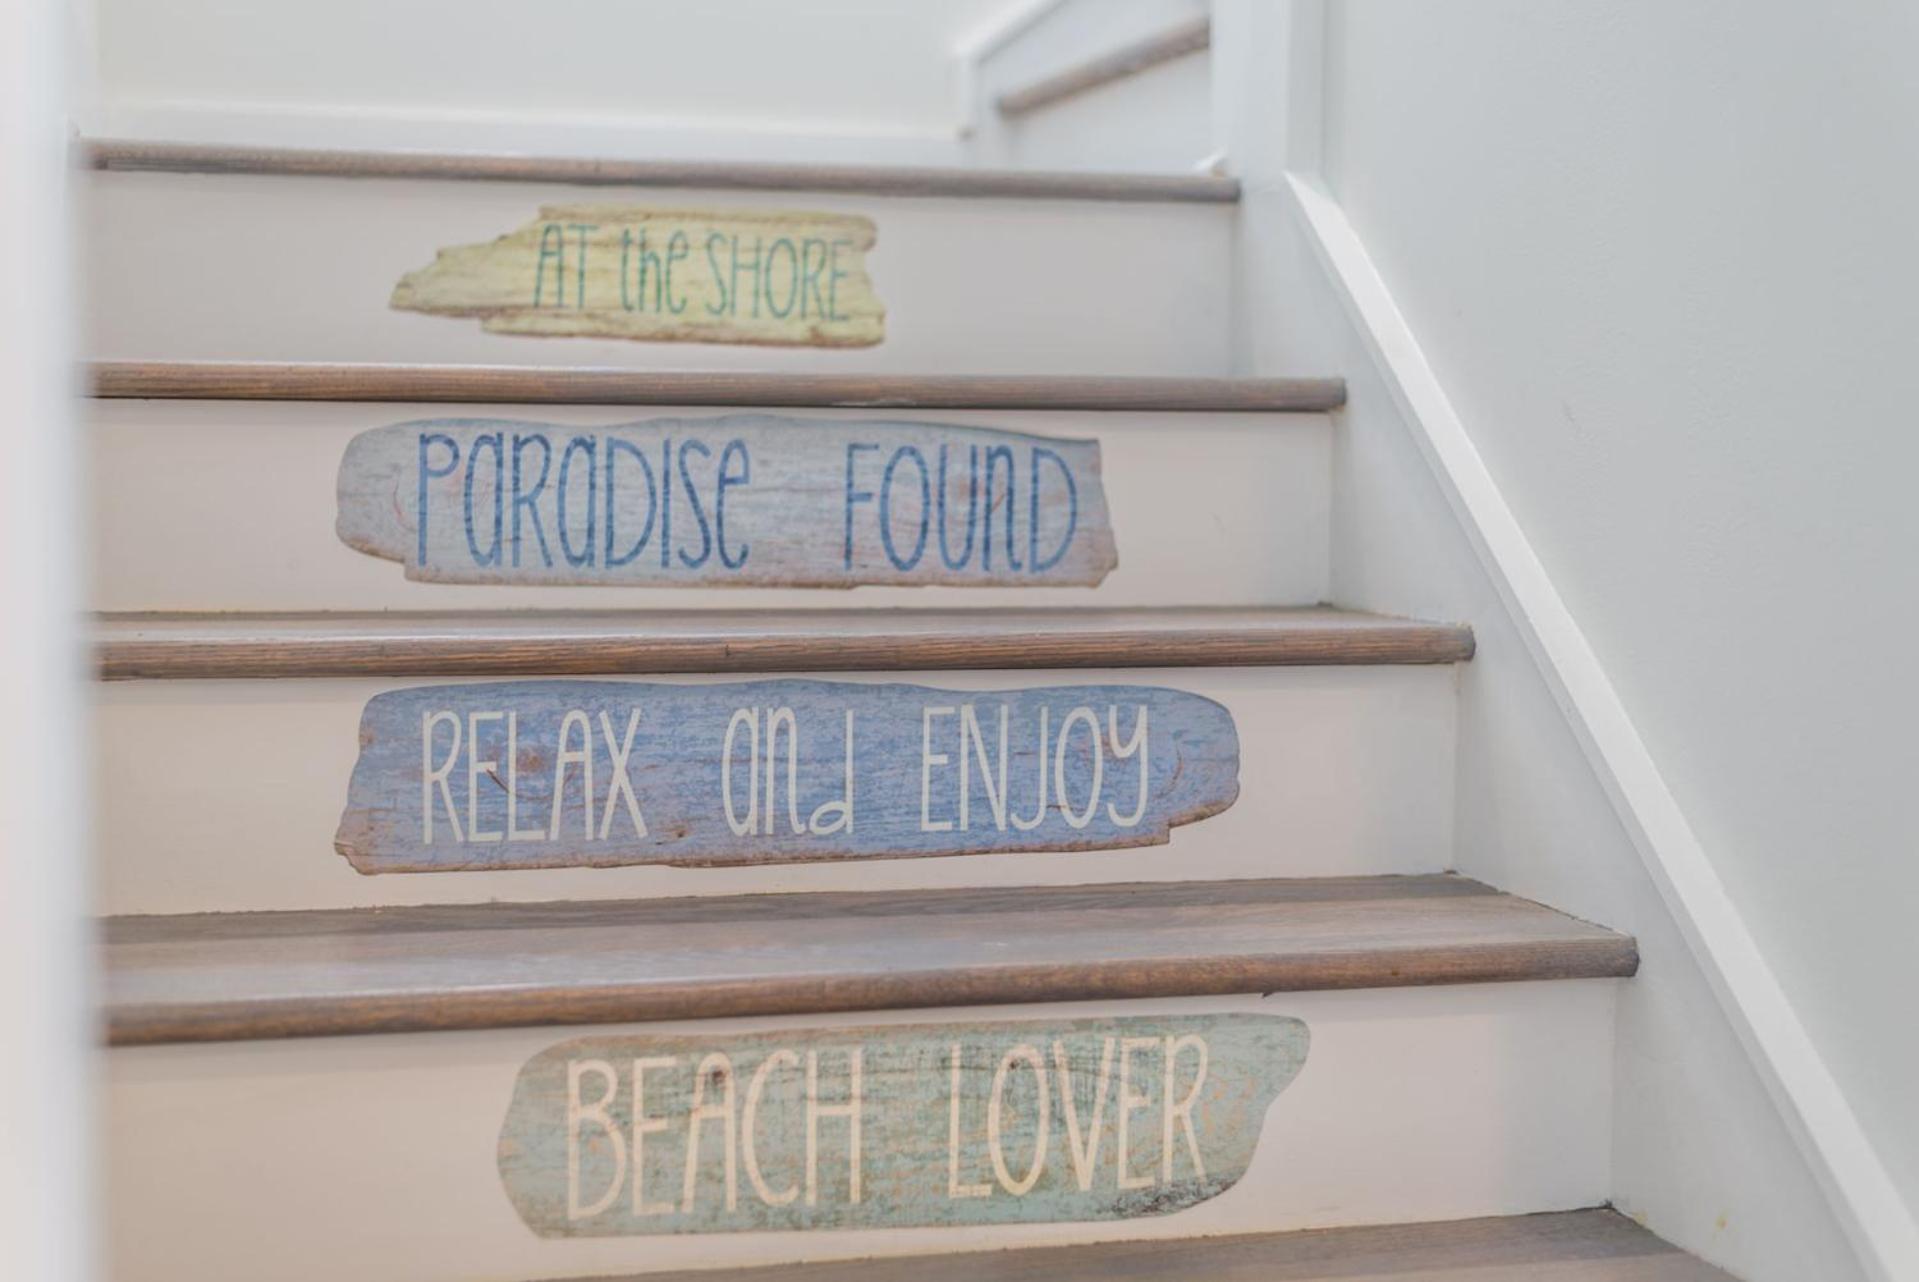 AT the SHORE
PaRaDISe FOUnD
RELAX and ENJOY
BEACH LOVER